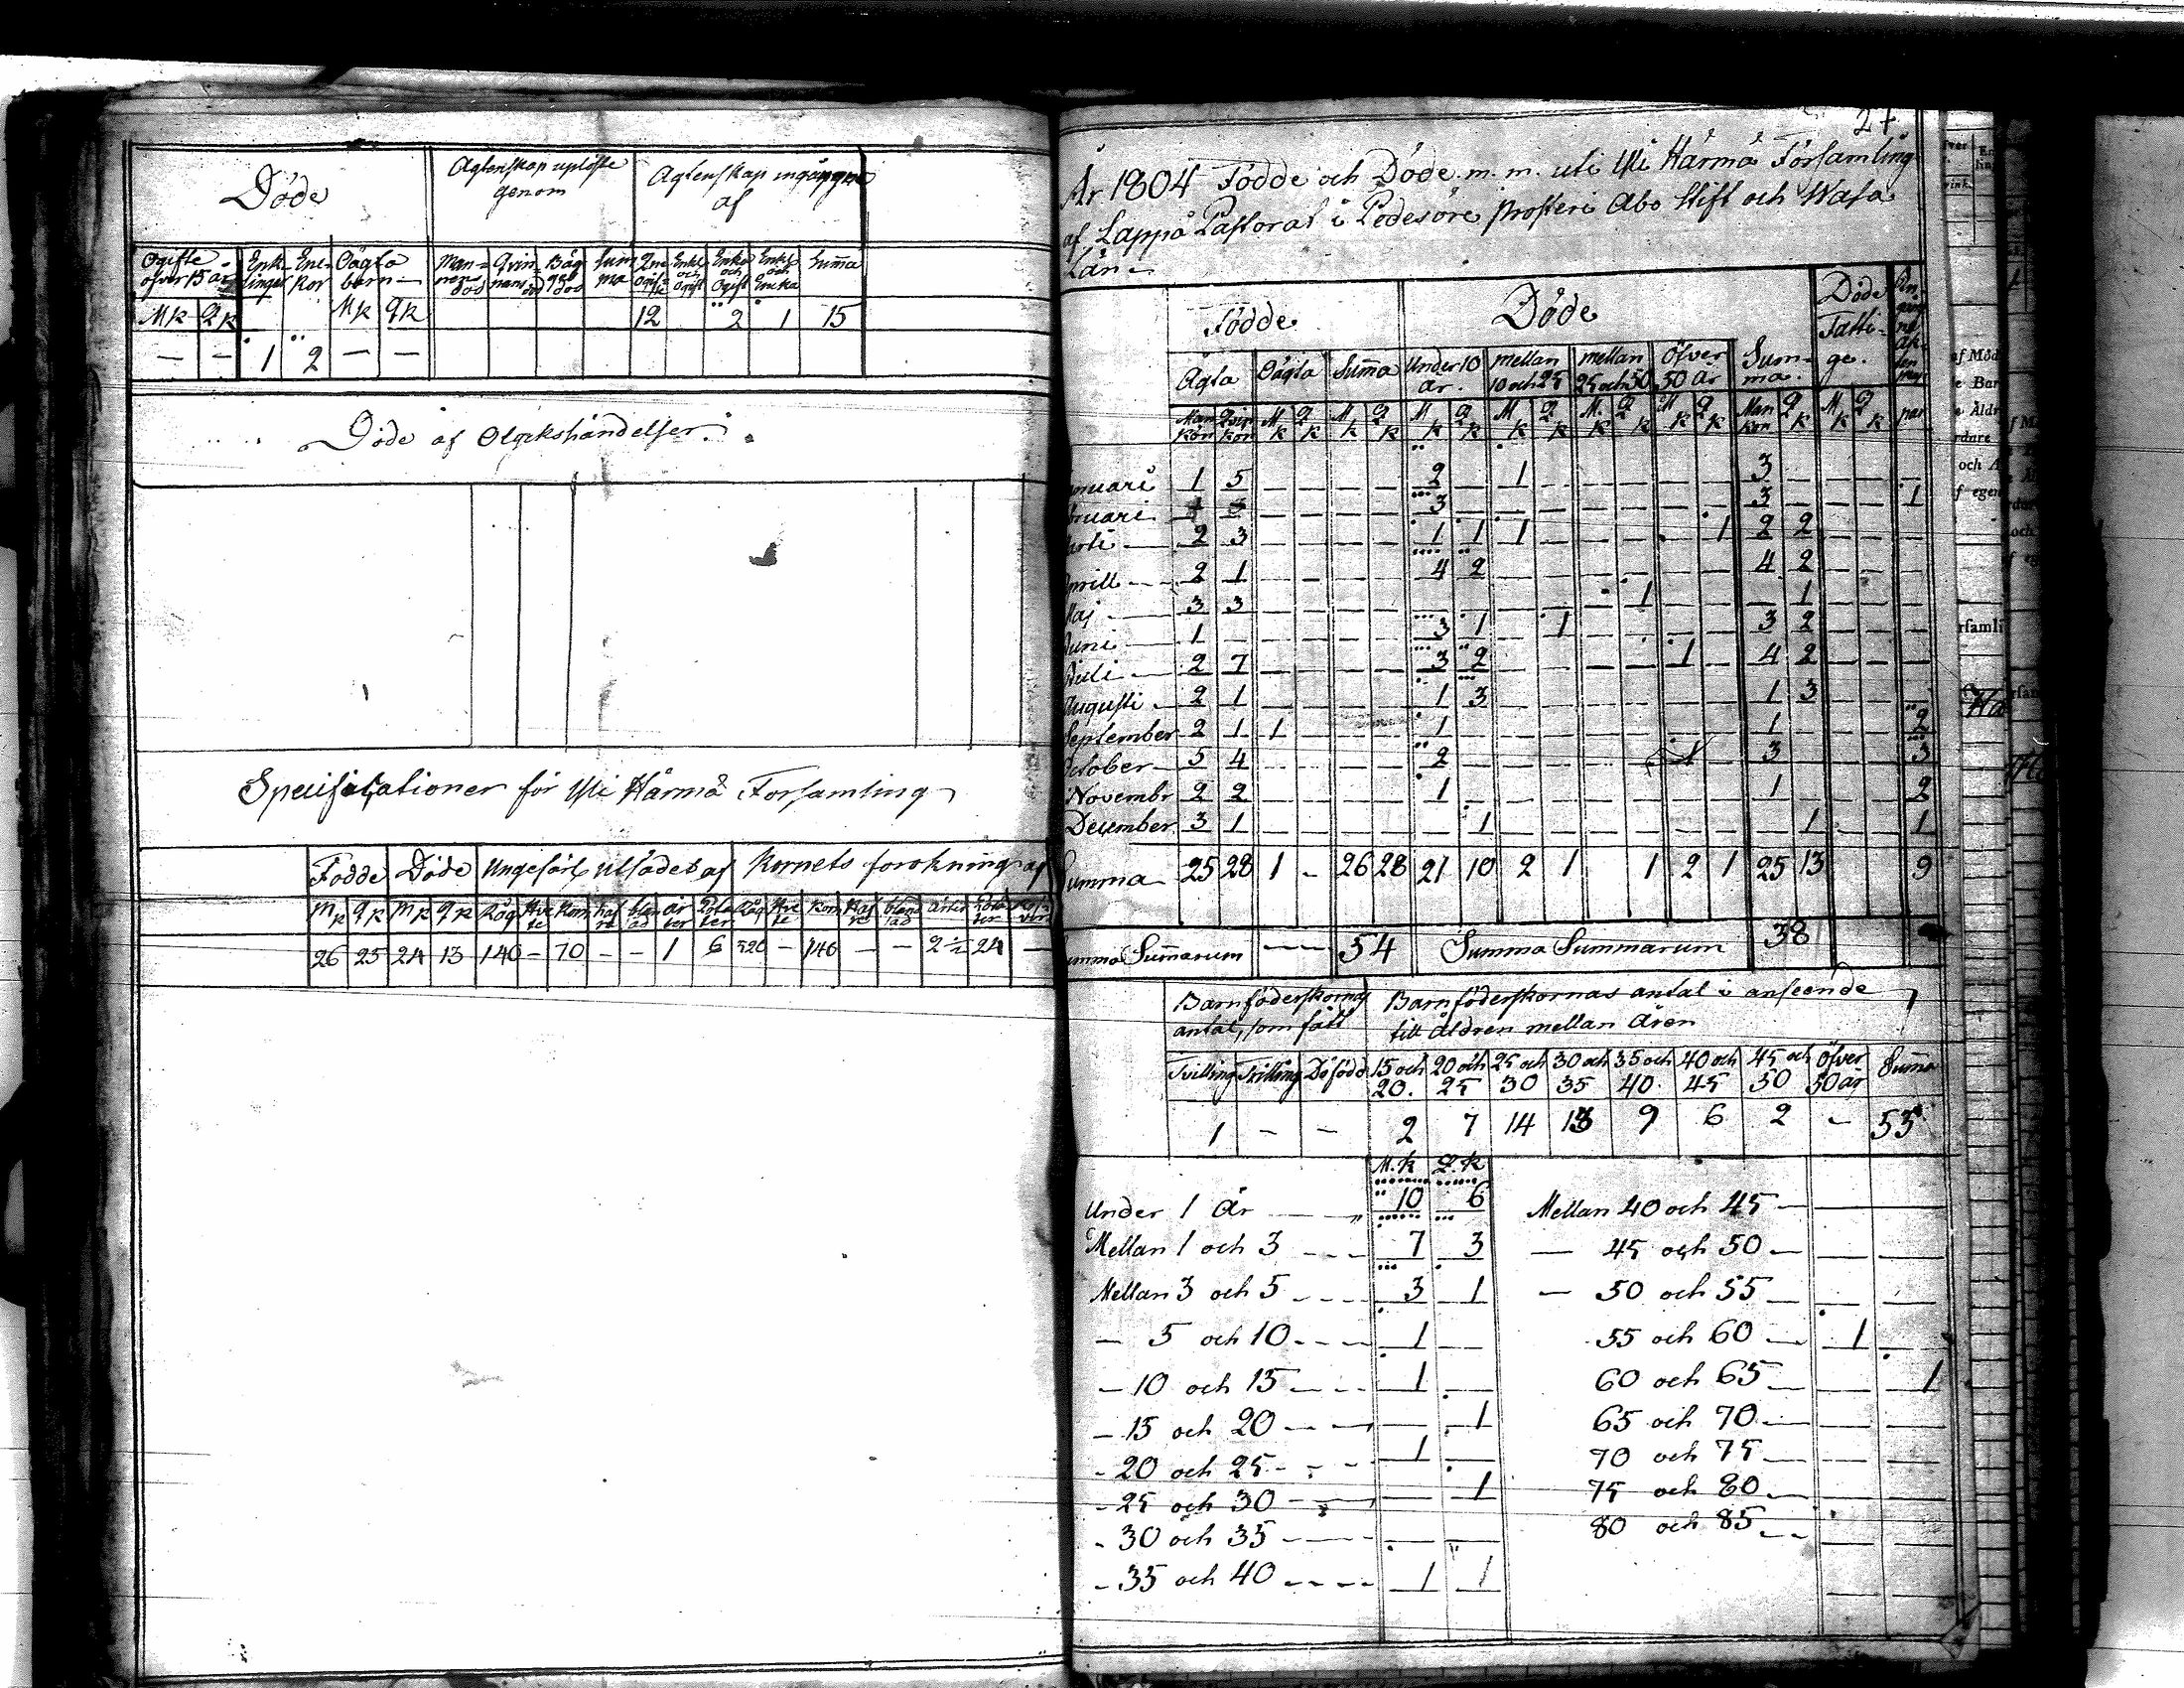 Döde
Ägtenskap uplöste genom
Ägtenskap ingångne af
Ogifte öfver 15 år
Enklingar
Enkor
Oägta barn
Mansdöd
Qvinnans död
Bäggas död
Summa
Ogifte
Enkl. och Ogift
Enka och Ogift
Enkl. och Enka
Summa
Mk Qk Mk Qk 12 2 1 15
— — 1 2 — —
Döde af Olyckshändelser.
Specificationer för Yli Härmä Församling
Födde Döde Ungefärl. utsädet af Kornets förökning af
Mk Qk Mk Qk Råg Hvete Korn Hafre blansäd ärter Råg Hvete Korn Hafre blansäd ärter
26 25 24 13 140 — 70 — — 1 6 520 — 146 — — 2½ 24 —
27
År 1804 Födde och Döde m. m. uti Yli Härmä Församling
af Lappå Pastorat i Pedersöre prosteri Åbo Stift och Wasa
Län
Födde Döde Döde Fattige.
Ägta Oägta Summa Under 10 år. mellan 10 och 25 mellan 25 och 50 Öfver 50 år Summa.
Mankön Qvinkön Mk Qk Mk Qk Mk Qk Mk Qk Mk Qk Mk Qk Mankön Qk Mk Qk par
nuari 1 5 — — — — 2 1 — — — — 3 — — — —
bruari — — — — 3 — — — — — — — 3 — — — 1
arti 2 3 — — — — 1 1 1 — — — — 1 2 2 — — —
prill 2 1 — — — — 4 2 — — — — — — 4 2 — — —
Maj 3 3 — — — — — — — — — 1 — — — 1 — — —
Juni 1 — — — — — 3 1 — 1 — — — — 3 2 — — —
Juli 2 7 — — — — 3 2 — — — — 1 — 4 2 — — —
Augusti 2 1 1 3 1 3
September 2 1 1 1 1 2
October 5 4 — — — — 2 — — — — — 1 — 3 — — — 3
Novembr 2 2 — — — — 1 — — — — — — — 1 — — — 2
December 3 1 — — — — — 1 — — — — — — — 1 — — 1
Summa 25 28 1 — 26 28 21 10 2 1 1 2 1 25 13 9
Summa Summarum — 54 Summa Summarum 38
Barnföderskornas antal, som fått
Barnföderskornas antal i anseende till åldren mellan åren
Tvilling Trilling Dödfödd 15 och 20. 20 och 25 25 och 30 30 och 35 35 och 40 40 och 45 45 och 50 öfver 50 år Summa
1 — — 2 7 14 13 9 6 2 — 53
M.k Q.k
Under 1 år 10 6 Mellan 40 och 45 — — —
Mellan 1 och 3 7 3 — 45 och 50 — — —
Mellan 3 och 5 3 1 — 50 och 55 — — —
— 5 och 10 1 — 55 och 60 — 1 —
— 10 och 15 1 — 60 och 65 — — 1
— 15 och 20 — 1 65 och 70 — — —
- 20 och 25 1 — 70 och 75 — — —
- 25 och 30 — 1 75 och 80 — — —
- 30 och 35 — — 80 och 85 — — —
- 35 och 40 1 1